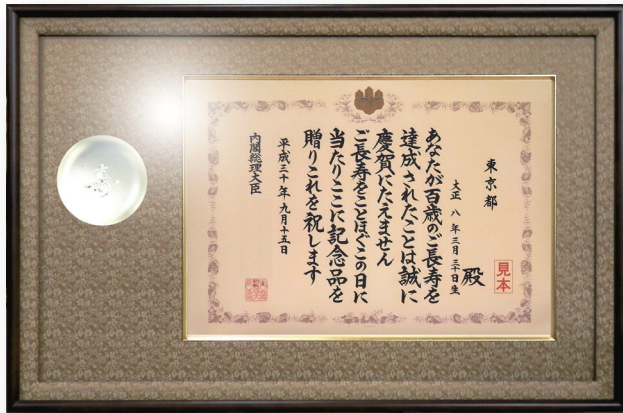 見本
東京都
殿
大正 八 年 三月 三十日生
あなたが百歳のご長寿を
達成されたことは誠に
慶賀にたえません
ご長寿をことほぐこの日に
当たりここに記念品を
贈りこれを祝します
平成三十年 九月十五日
内閣総理大臣
寿